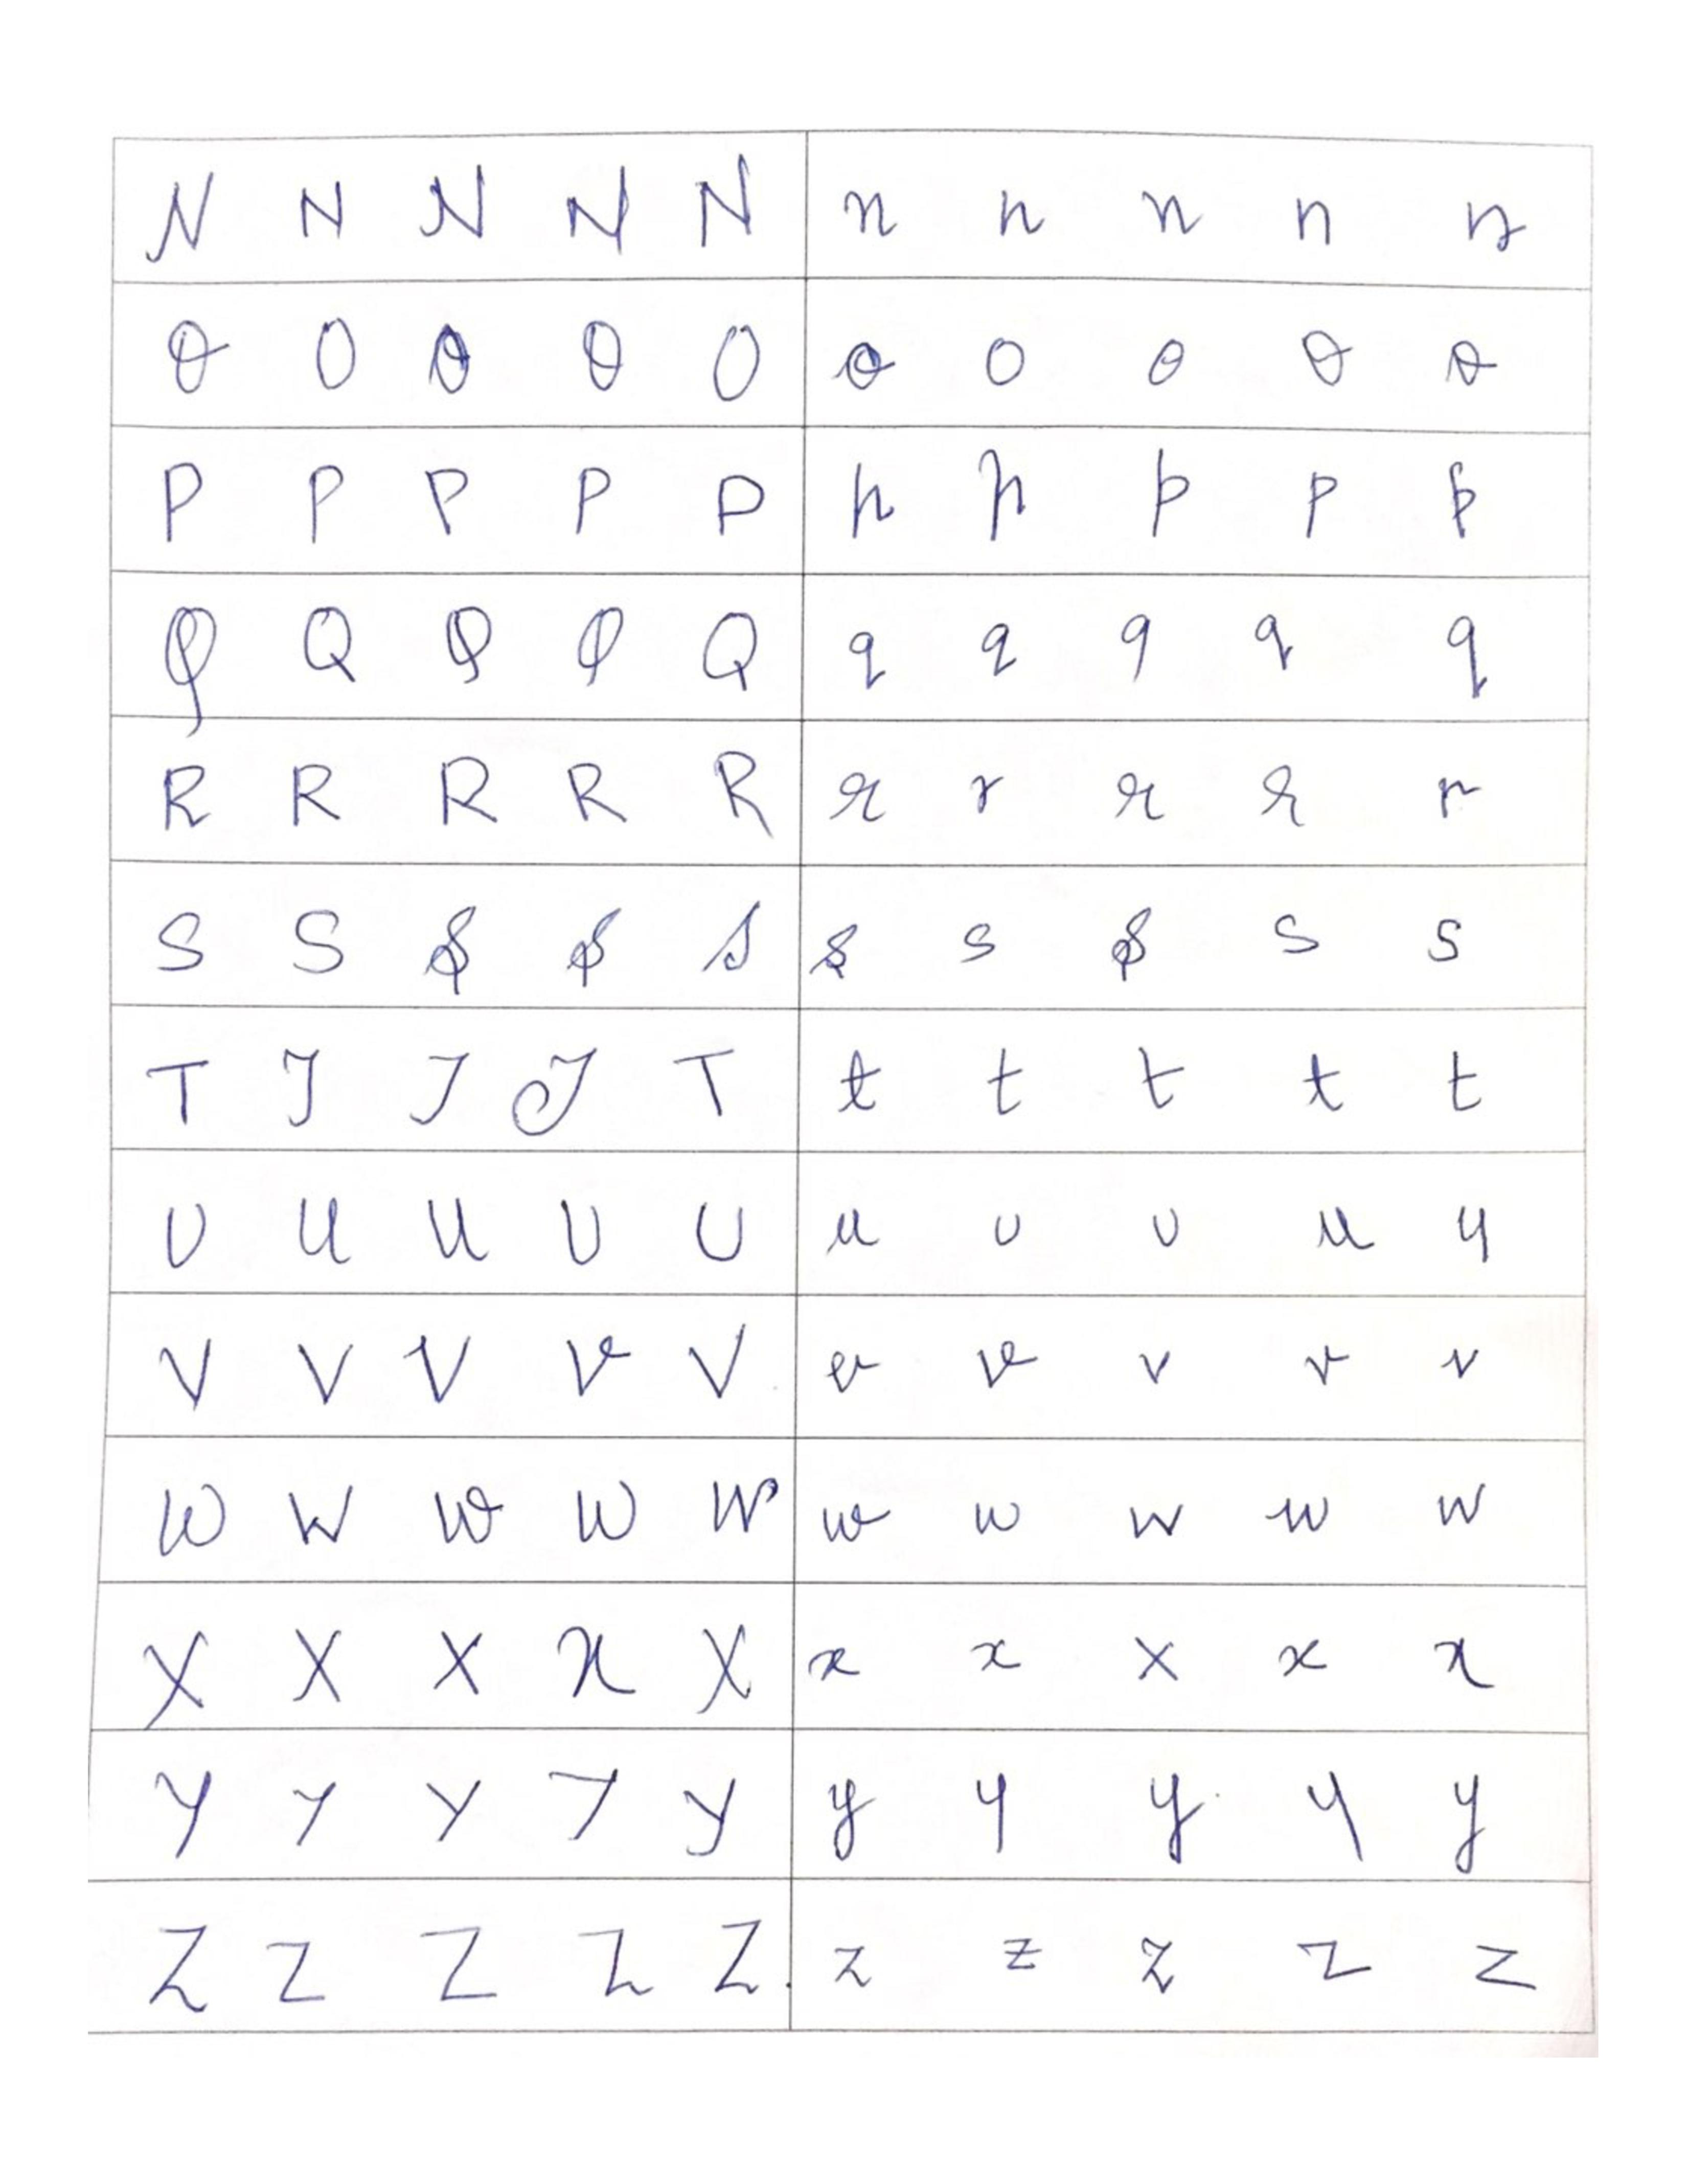 N N N N N n n n n n
O O O O O o o o o o
P P P P P p p p p p
Q Q Q Q Q q q q q q
R R R R R r r r r r
S S S S S s s s s s
T T T T T t t t t t
U U U U U u u u u u
V V V V V v v v v v
W W W W W w w w w w
X X X X X x x x x x
Y Y Y Y Y y y y y y
Z Z Z Z Z z z z z z